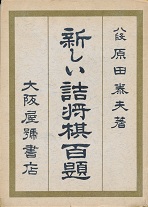 八段 原田泰夫著
新しい詰将棋百題
大阪屋號書店